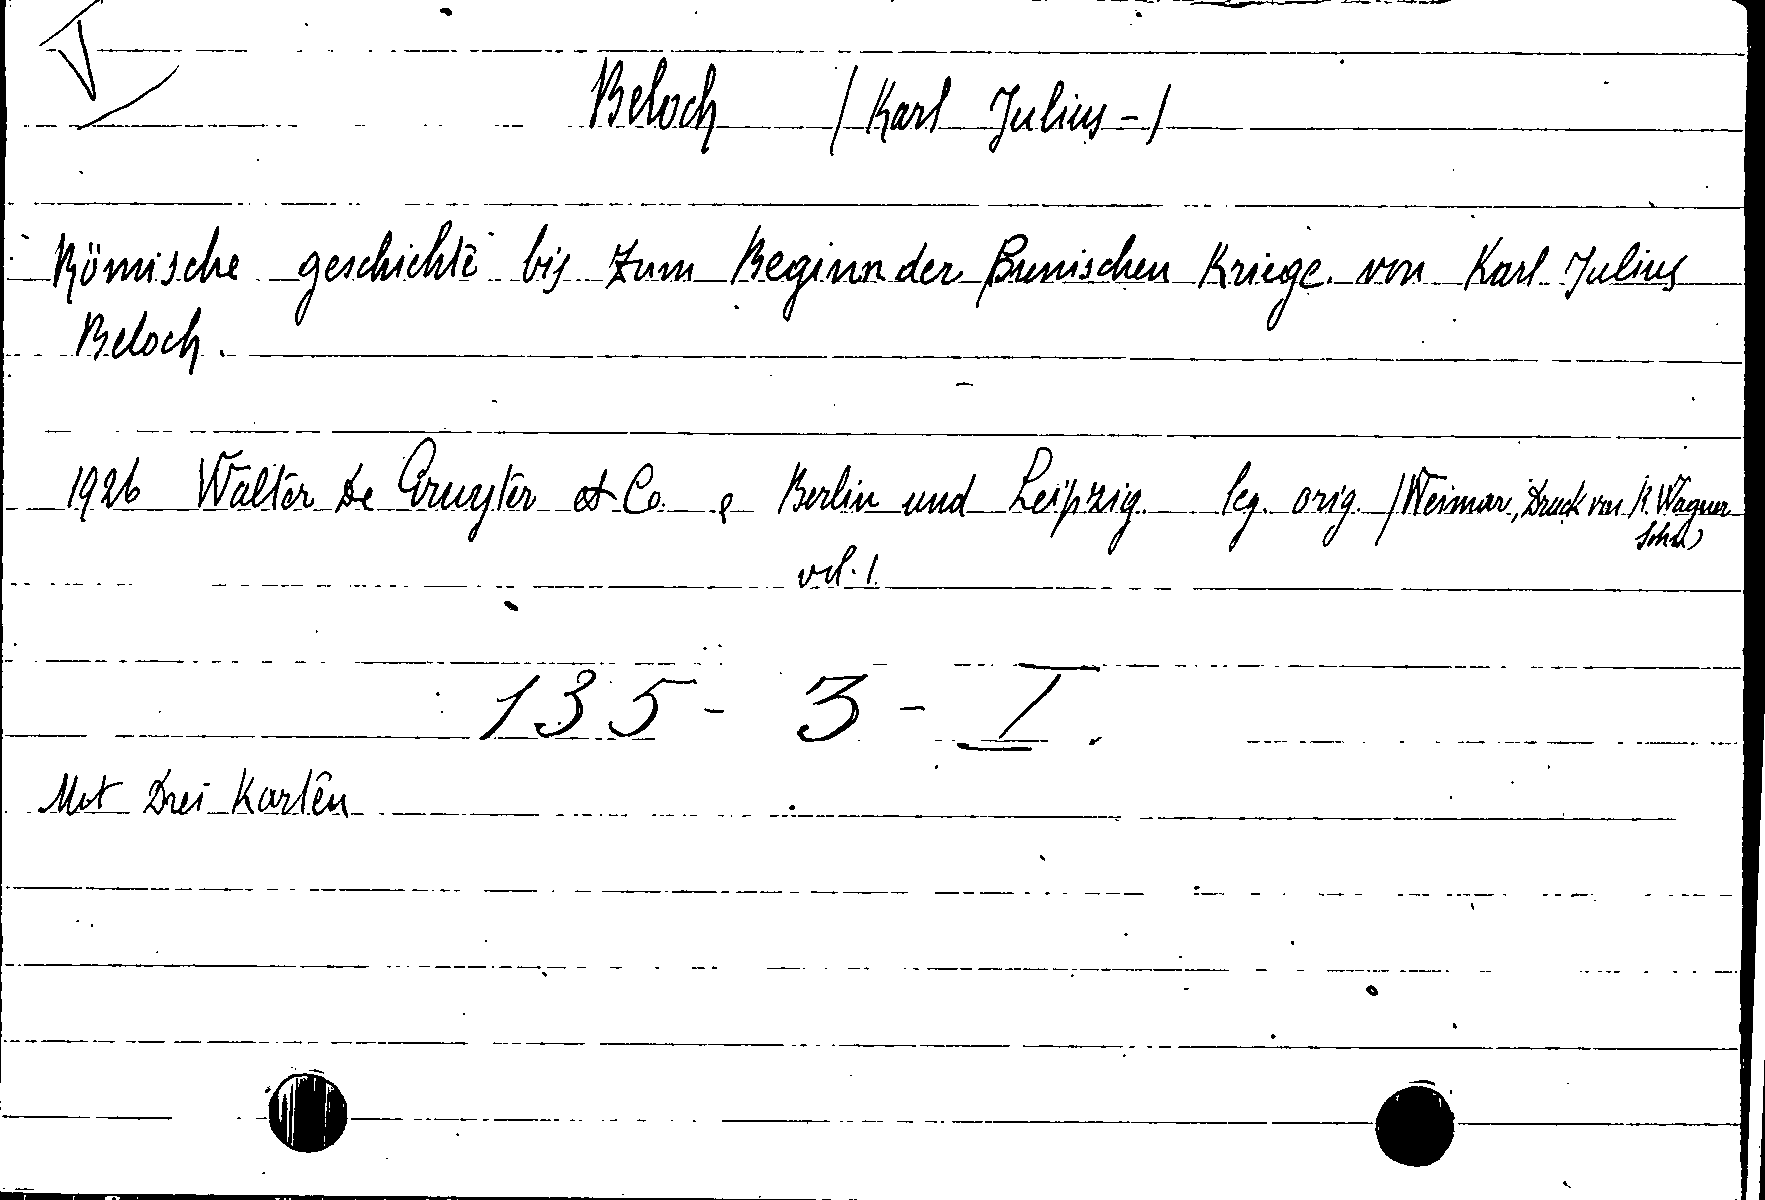 Beloch / Karl Julius - /
Römische geschichte bis zum Beginn der Punischen Kriege. von Karl Julius
Beloch.
1926 Walter de Gruyter & Co. , Berlin und Leipzig. leg. orig. / Weimar, Druck von R. Wagner
Sohn)
vol. 1.
135 - 3 - I.
Mit Drei Karten